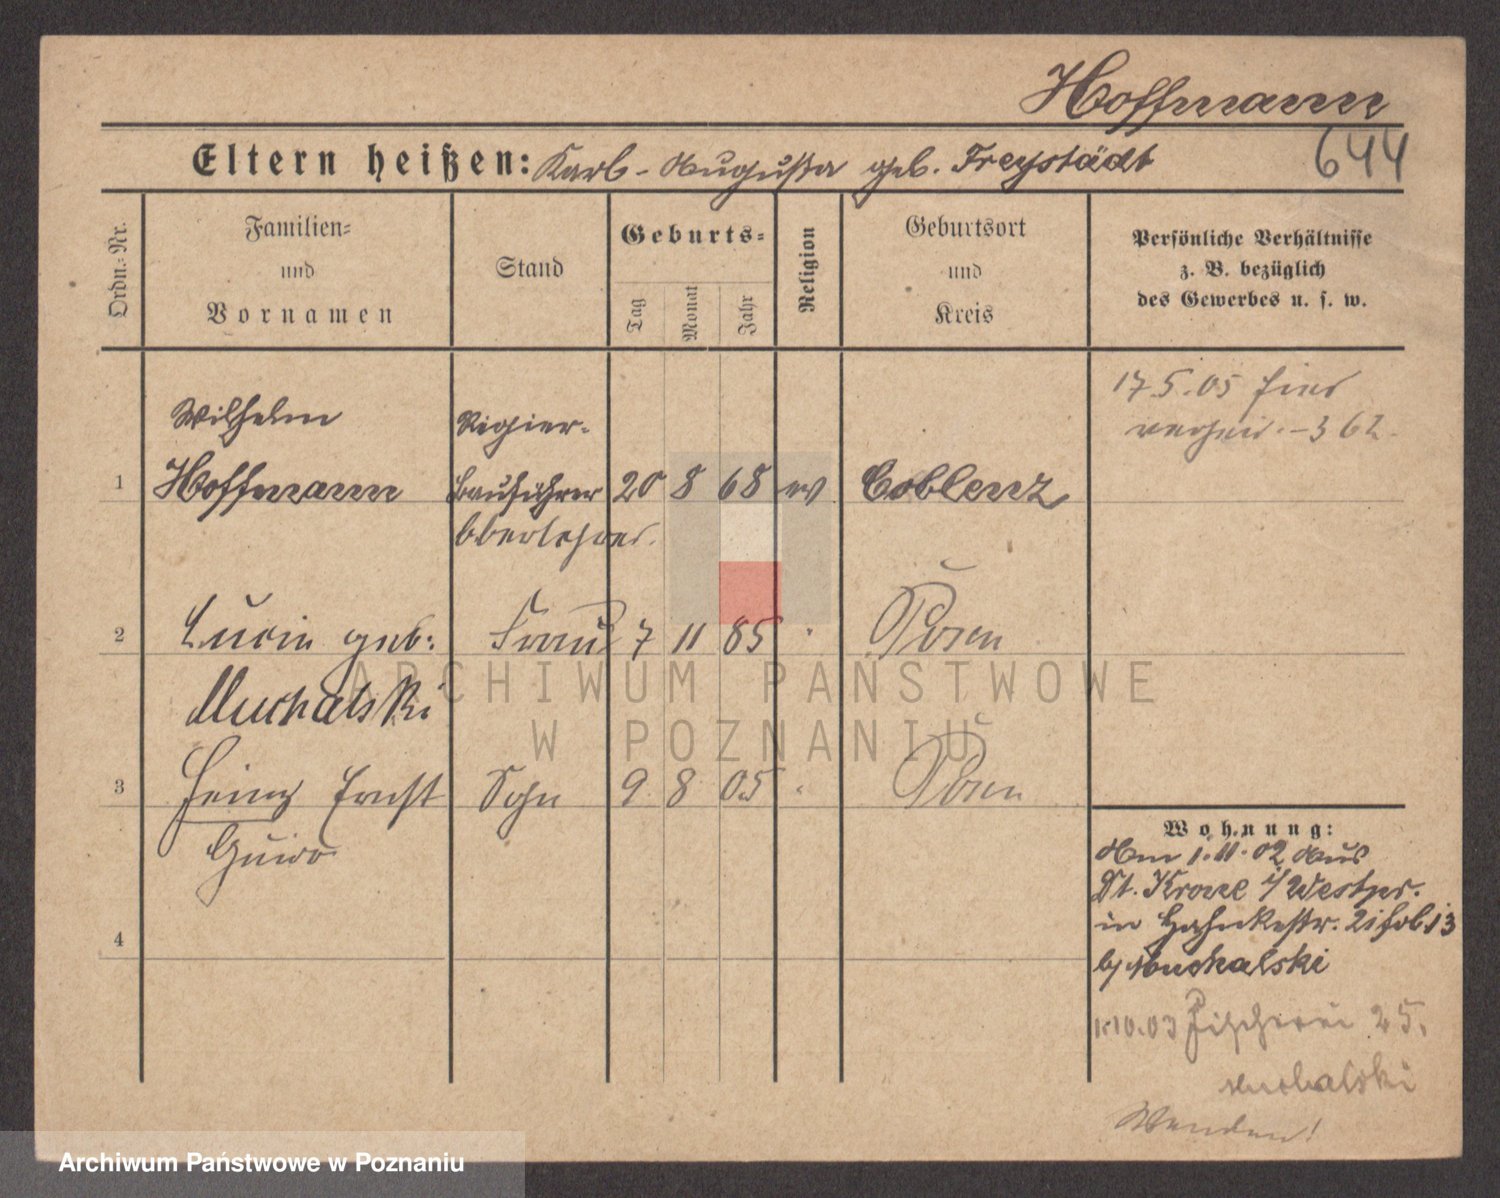 Hoffmann
644
Eltern heißen: Karl - Augusta geb. Freystädt
Ordn.-Nr.
Familien-
und
Vornamen
Stand
Geburts-
Tag
Monat
Jahr
Religion
Geburtsort
und
Kreis
Persönliche Verhältnisse
z. B. bezüglich
des Gewerbes u. s. w.
17.5.05
362.
Wilhelm
Regier-
1 Hoffmann Bauführer 20 8 68 ev Coblenz
Oberlehrer.
2 Lucie geb: Frau 7 11 85 " Posen
Muchalski
3 Heinz Ernst Sohn 9 8 05 " Posen
Guido
4
Wohnung:
Am 1.11.02 aus
Dt. Krone i/Westpr.
in Hahnkestr. 21
b/ Muchalski
1.10.03 Fischerei 25.
Muchalski
Wenden!
ARCHIWUM PAŃSTWOWE
W POZNANIU
Archiwum Państwowe w Poznaniu